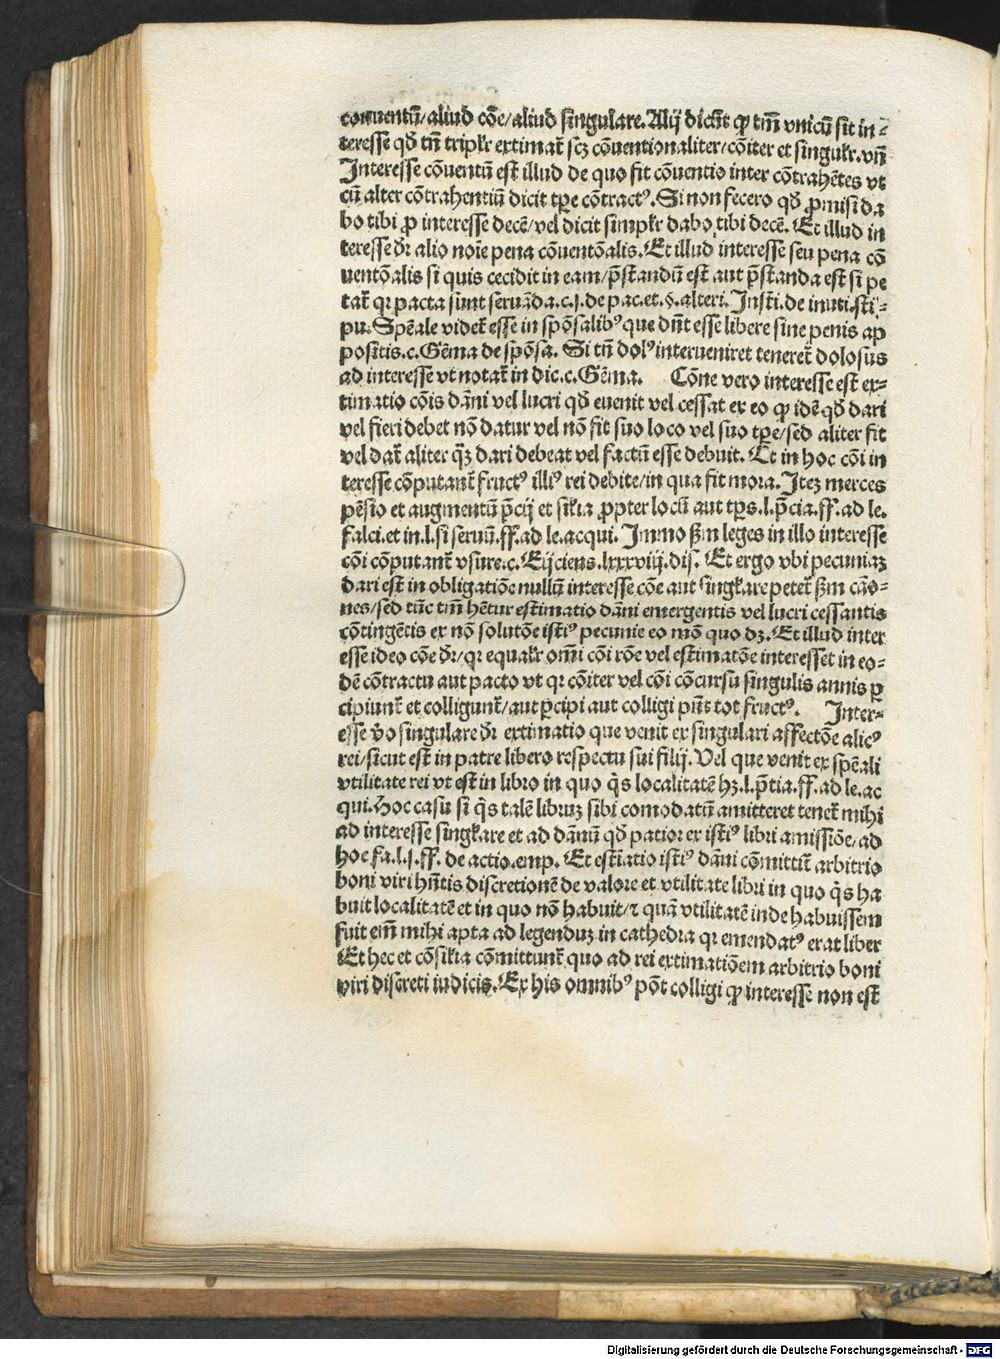 conuentū/aliud cōe/aliud singulare. Alij dicūt ꝙ tm̄ vnicū sit in-
teresse qḋ tn̄ triplr̄ extimat̄ scꝫ cōuentionaliter/cōiter et singulr̄. vn̄
Interesse cōuentū est illud de quo fit cōuentio inter cōtrahētes vt
cū alter cōtrahentiū dicit tꝑe cōtractꝰ. Si non fecero qḋ ꝓmisi da
bo tibi ꝓ interesse decē/vel dicit simplr̄ dabo tibi decē. Et illud in
teresse dr̄ alio noīe pena cōuentōalis. Et illud interesse seu pena cō
uentōalis si quis cecidit in eam/p̄standū est aut p̄standa est si pe
tat̄ qꝛ pacta sunt seruāda.c.j.de pac.et.§.alteri. Insti.de inuti.sti-
pu. Spēale videt̄ esse in spōsalibꝰ que dn̄t esse libere sine penis ap
positis.c.Gēma de spōsa. Si tn̄ dolꝰ interueniret teneret̄ dolosus
ad interesse vt notat̄ in dic.c.Gēma. Cōne vero interesse est ex-
timatio cōis dāni vel lucri qḋ euenit vel cessat ex eo ꝙ idē qḋ dari
vel fieri debet nō datur vel nō fit suo loco vel suo tꝑe/sed aliter fit
vel dat̄ aliter q̄ꝫ dari debeat vel factū esse debuit. Et in hoc cōi in
teresse cōputant̄ fructꝰ illiꝰ rei debite/in qua fit mora. Iteꝫ merces
pēsio et augmentū p̄cij et sil̄ia ꝓpter locū aut tꝑs.l.p̄cia.ff.ad le.
falci.et in.l.si seruū.ff.ad le.acqui. Immo ẞm leges in illo interesse
cōi cōputant̄ vsure.c.Eijciens.lxxxviij.dis. Et ergo vbi pecuniaꝫ
dari est in obligatiōe nullū interesse cōe aut singl̄are petet̄ ẞm cāo-
nes/sed tūc tm̄ hētur estimatio dāni emergentis vel lucri cessantis
cōtingētis ex nō solutōe istiꝰ pecunie eo mō quo dꝫ. Et illud inter
esse ideo cōe dr̄/qꝛ equalr̄ om̄i cōi rōe vel estimatōe interesset in eo-
dē cōtractu aut pacto vt qꝛ cōiter vel cōi cōcursu singulis annis ꝑ
cipiunt̄ et colligunt̄/aut ꝑcipi aut colligi pn̄t tot fructꝰ. Inter-
esse v̄o singulare dr̄ extimatio que venit ex singulari affectōe alicꝰ
rei/sicut est in patre libero respectu sui filij. Vel que venit ex spēali
vtilitate rei vt est in libro in quo q̇s localitatē hꝫ.l.p̄tia.ff.ad le.ac
qui. Hoc casu si q̇s talē libruꝫ sibi comodatū amitteret tenet̄ mihi
ad interesse singl̄are et ad dānū qḋ patior ex istiꝰ libri amissiōe/ad
hoc fa.l.j.ff. de actio.emp. Et estiatio istiꝰ dāni cōmittit̄ arbitrio
boni viri hn̄tis discretionē de valore et vtilitate libri in quo q̇s ha
buit localitatē et in quo nō habuit/ꝛ quā vtilitatē inde habuissem
fuit em̄ mihi apta ad legenduꝫ in cathedra qꝛ emendatꝰ erat liber
Et hec et cōsil̄ia cōmittunt̄ quo ad rei extimatiōem arbitrio boni
viri discreti iudicis. Ex his omnibꝰ pōt colligi ꝙ interesse non est
Digitalisierung gefördert durch die Deutsche Forschungsgemeinschaft - DFG